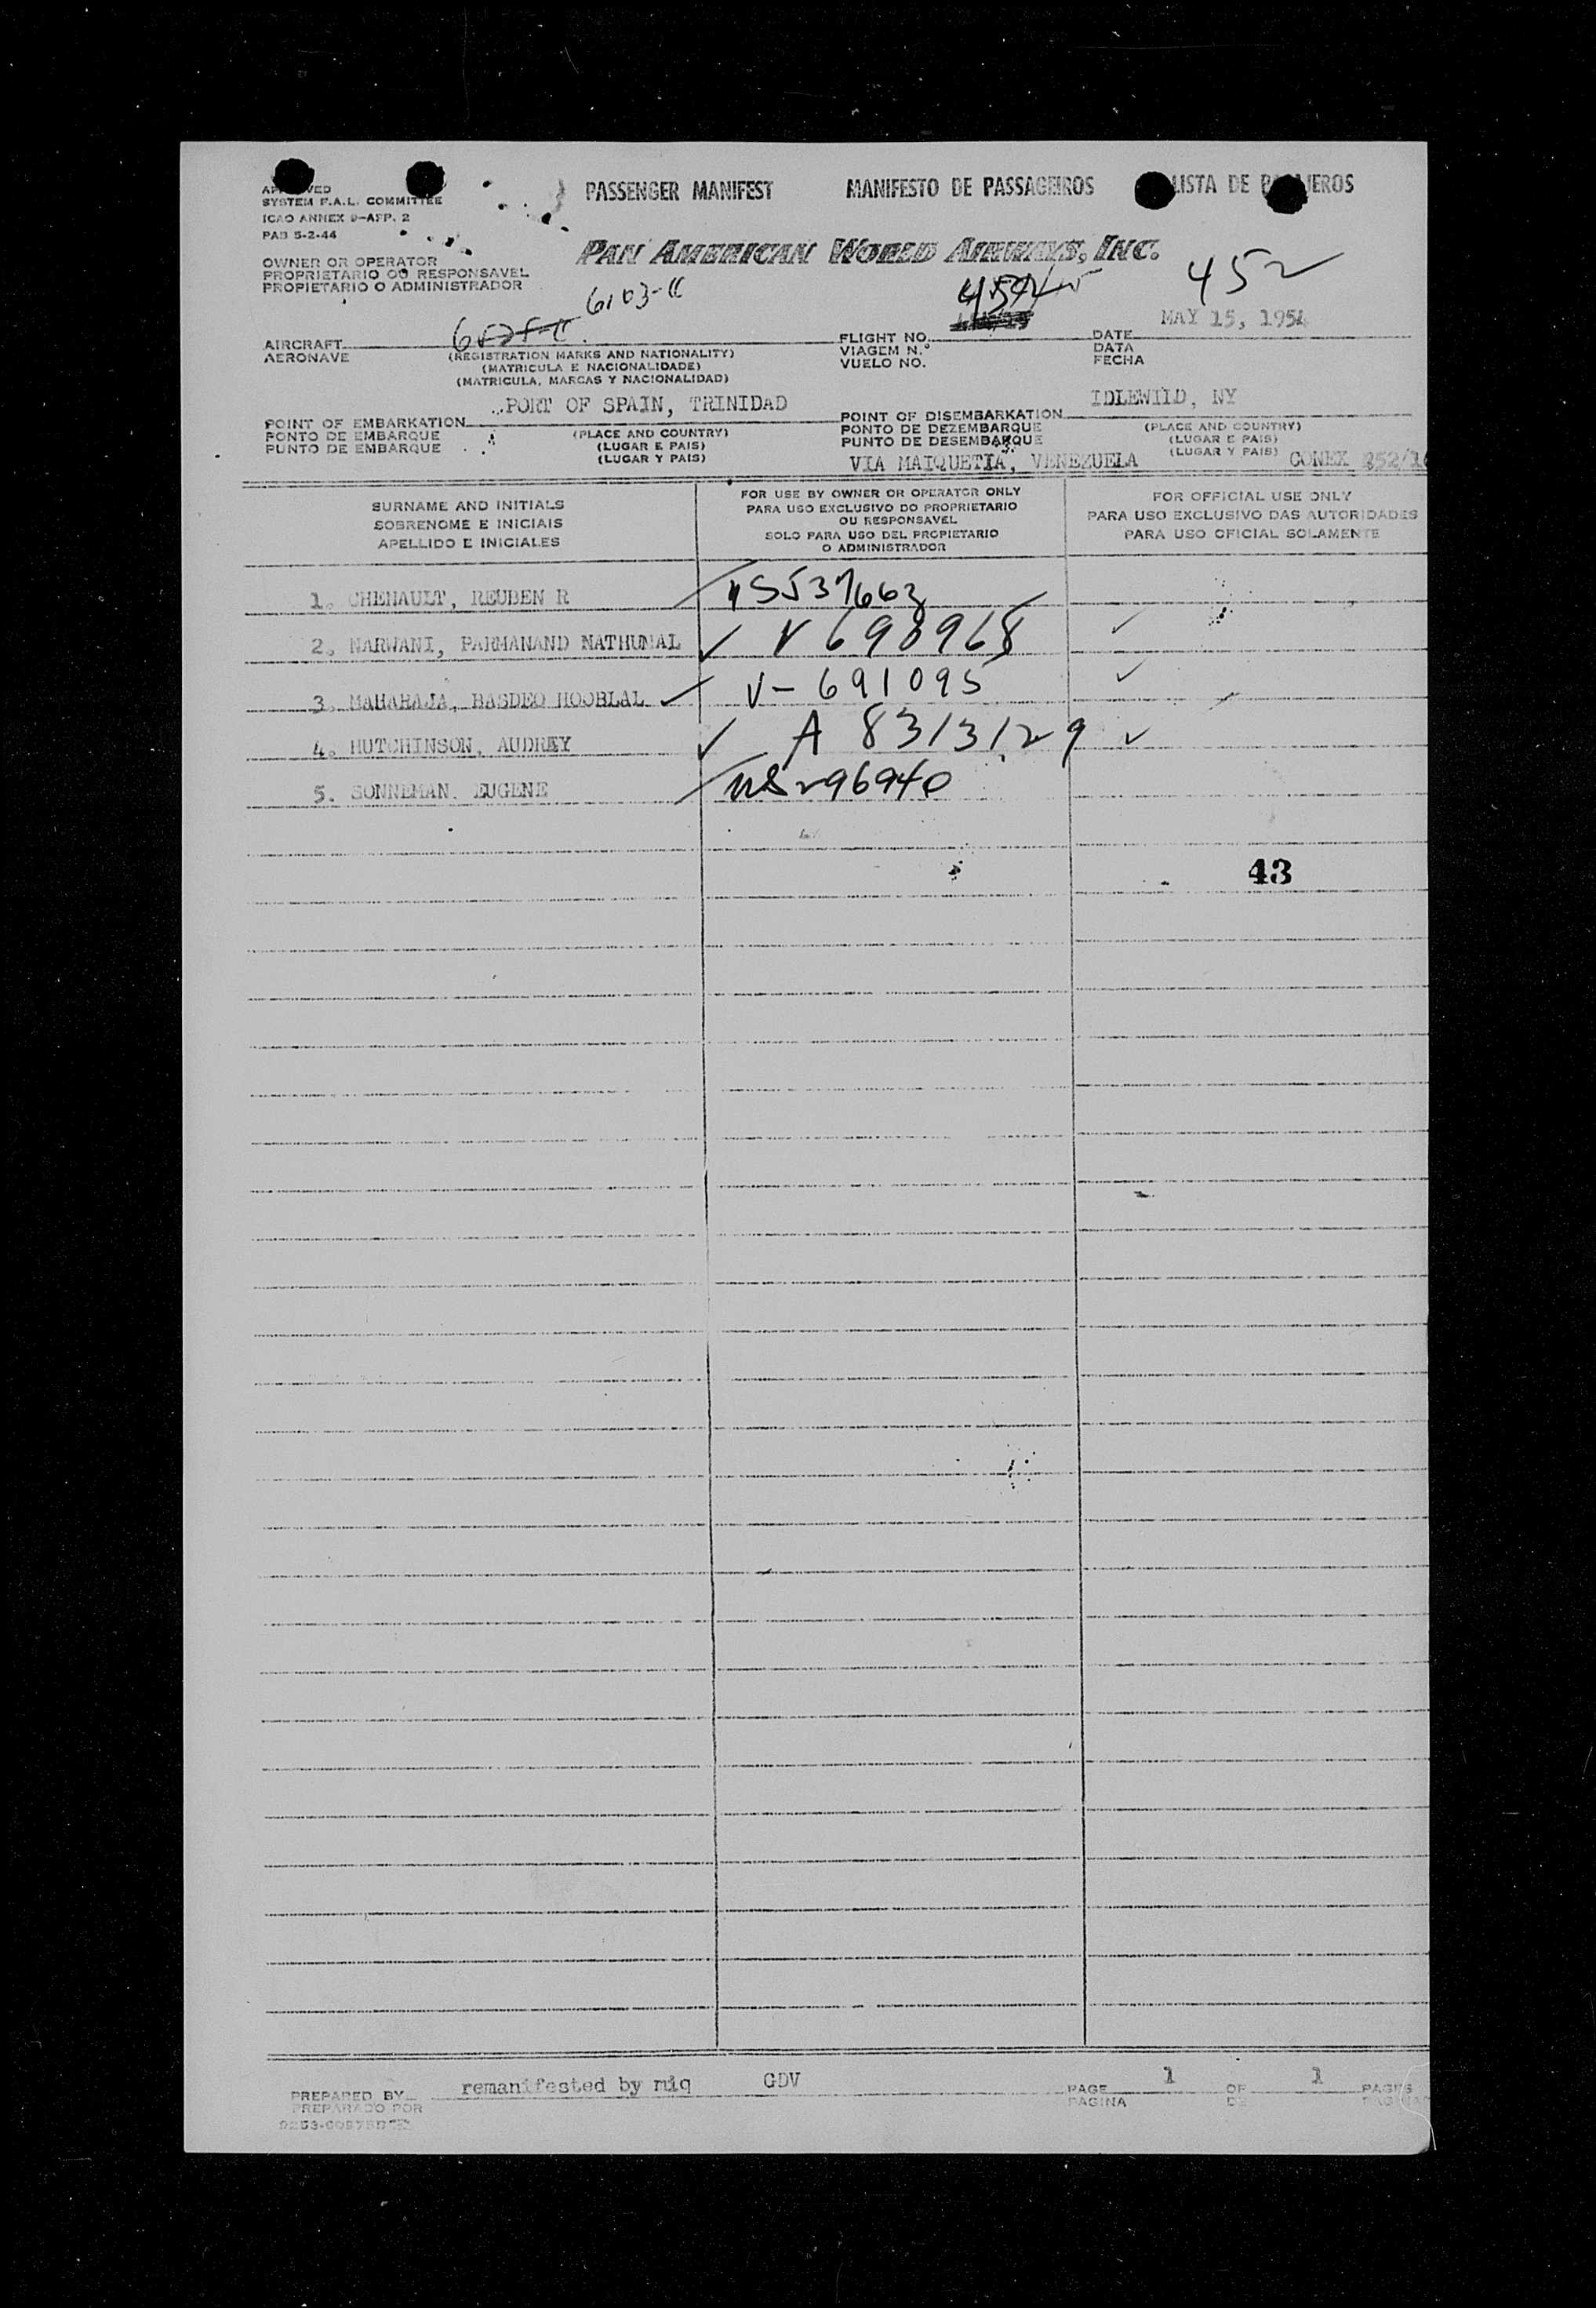 PASSENGER MANIFEST MANIFESTO DE PASSAGEIROS LISTA DE
SYSTEM F.A.L. COMMITTEE
ICAO ANNEX 9-APP. 2
PAB 5-2-44
OWNER OR OPERATOR
PROPRIETARIO OU RESPONSAVEL
PROPIETARIO O ADMINISTRADOR
PAN AMERICAN WORLD AIRWAYS, INC.
6103-C
452
AIRCRAFT
AERONAVE
(REGISTRATION MARKS AND NATIONALITY)
(MATRICULA E NACIONALIDADE)
(MATRICULA, MARCAS Y NACIONALIDAD)
FLIGHT NO.
VIAGEM N.°
VUELO NO.
DATE MAY 15, 1954
DATA
FECHA
POINT OF EMBARKATION PORT OF SPAIN, TRINIDAD
PONTO DE EMBARQUE
PUNTO DE EMBARQUE
(PLACE AND COUNTRY)
(LUGAR E PAIS)
(LUGAR Y PAIS)
POINT OF DISEMBARKATION IDLEWILD, NY
PONTO DE DEZEMBARQUE
PUNTO DE DESEMBARQUE
(PLACE AND COUNTRY)
(LUGAR E PAIS)
(LUGAR Y PAIS)
VIA MAIQUETIA, VENEZUELA CONEX
SURNAME AND INITIALS
SOBRENOME E INICIAIS
APELLIDO E INICIALES
FOR USE BY OWNER OR OPERATOR ONLY
PARA USO EXCLUSIVO DO PROPRIETARIO
OU RESPONSAVEL
SOLO PARA USO DEL PROPIETARIO
O ADMINISTRADOR
FOR OFFICIAL USE ONLY
PARA USO EXCLUSIVO DAS AUTORIDADES
PARA USO OFICIAL SOLAMENTE
1. CHENAULT, REUBEN R
2. NARWANI, PARMANAND NATHUMAL ✓ V 690968 ✓
3. MAHARAJA, BASDEO HOOBLAL ✓ V-691095 ✓
4. HUTCHINSON, AUDREY ✓ A 8313129 ✓
5. SONNEMAN, EUGENE US 296940
43
PREPARED BY remanifested by miq GDV
PREPARADO POR
PAGE 1 OF 1 PAGES
PAGINA DE